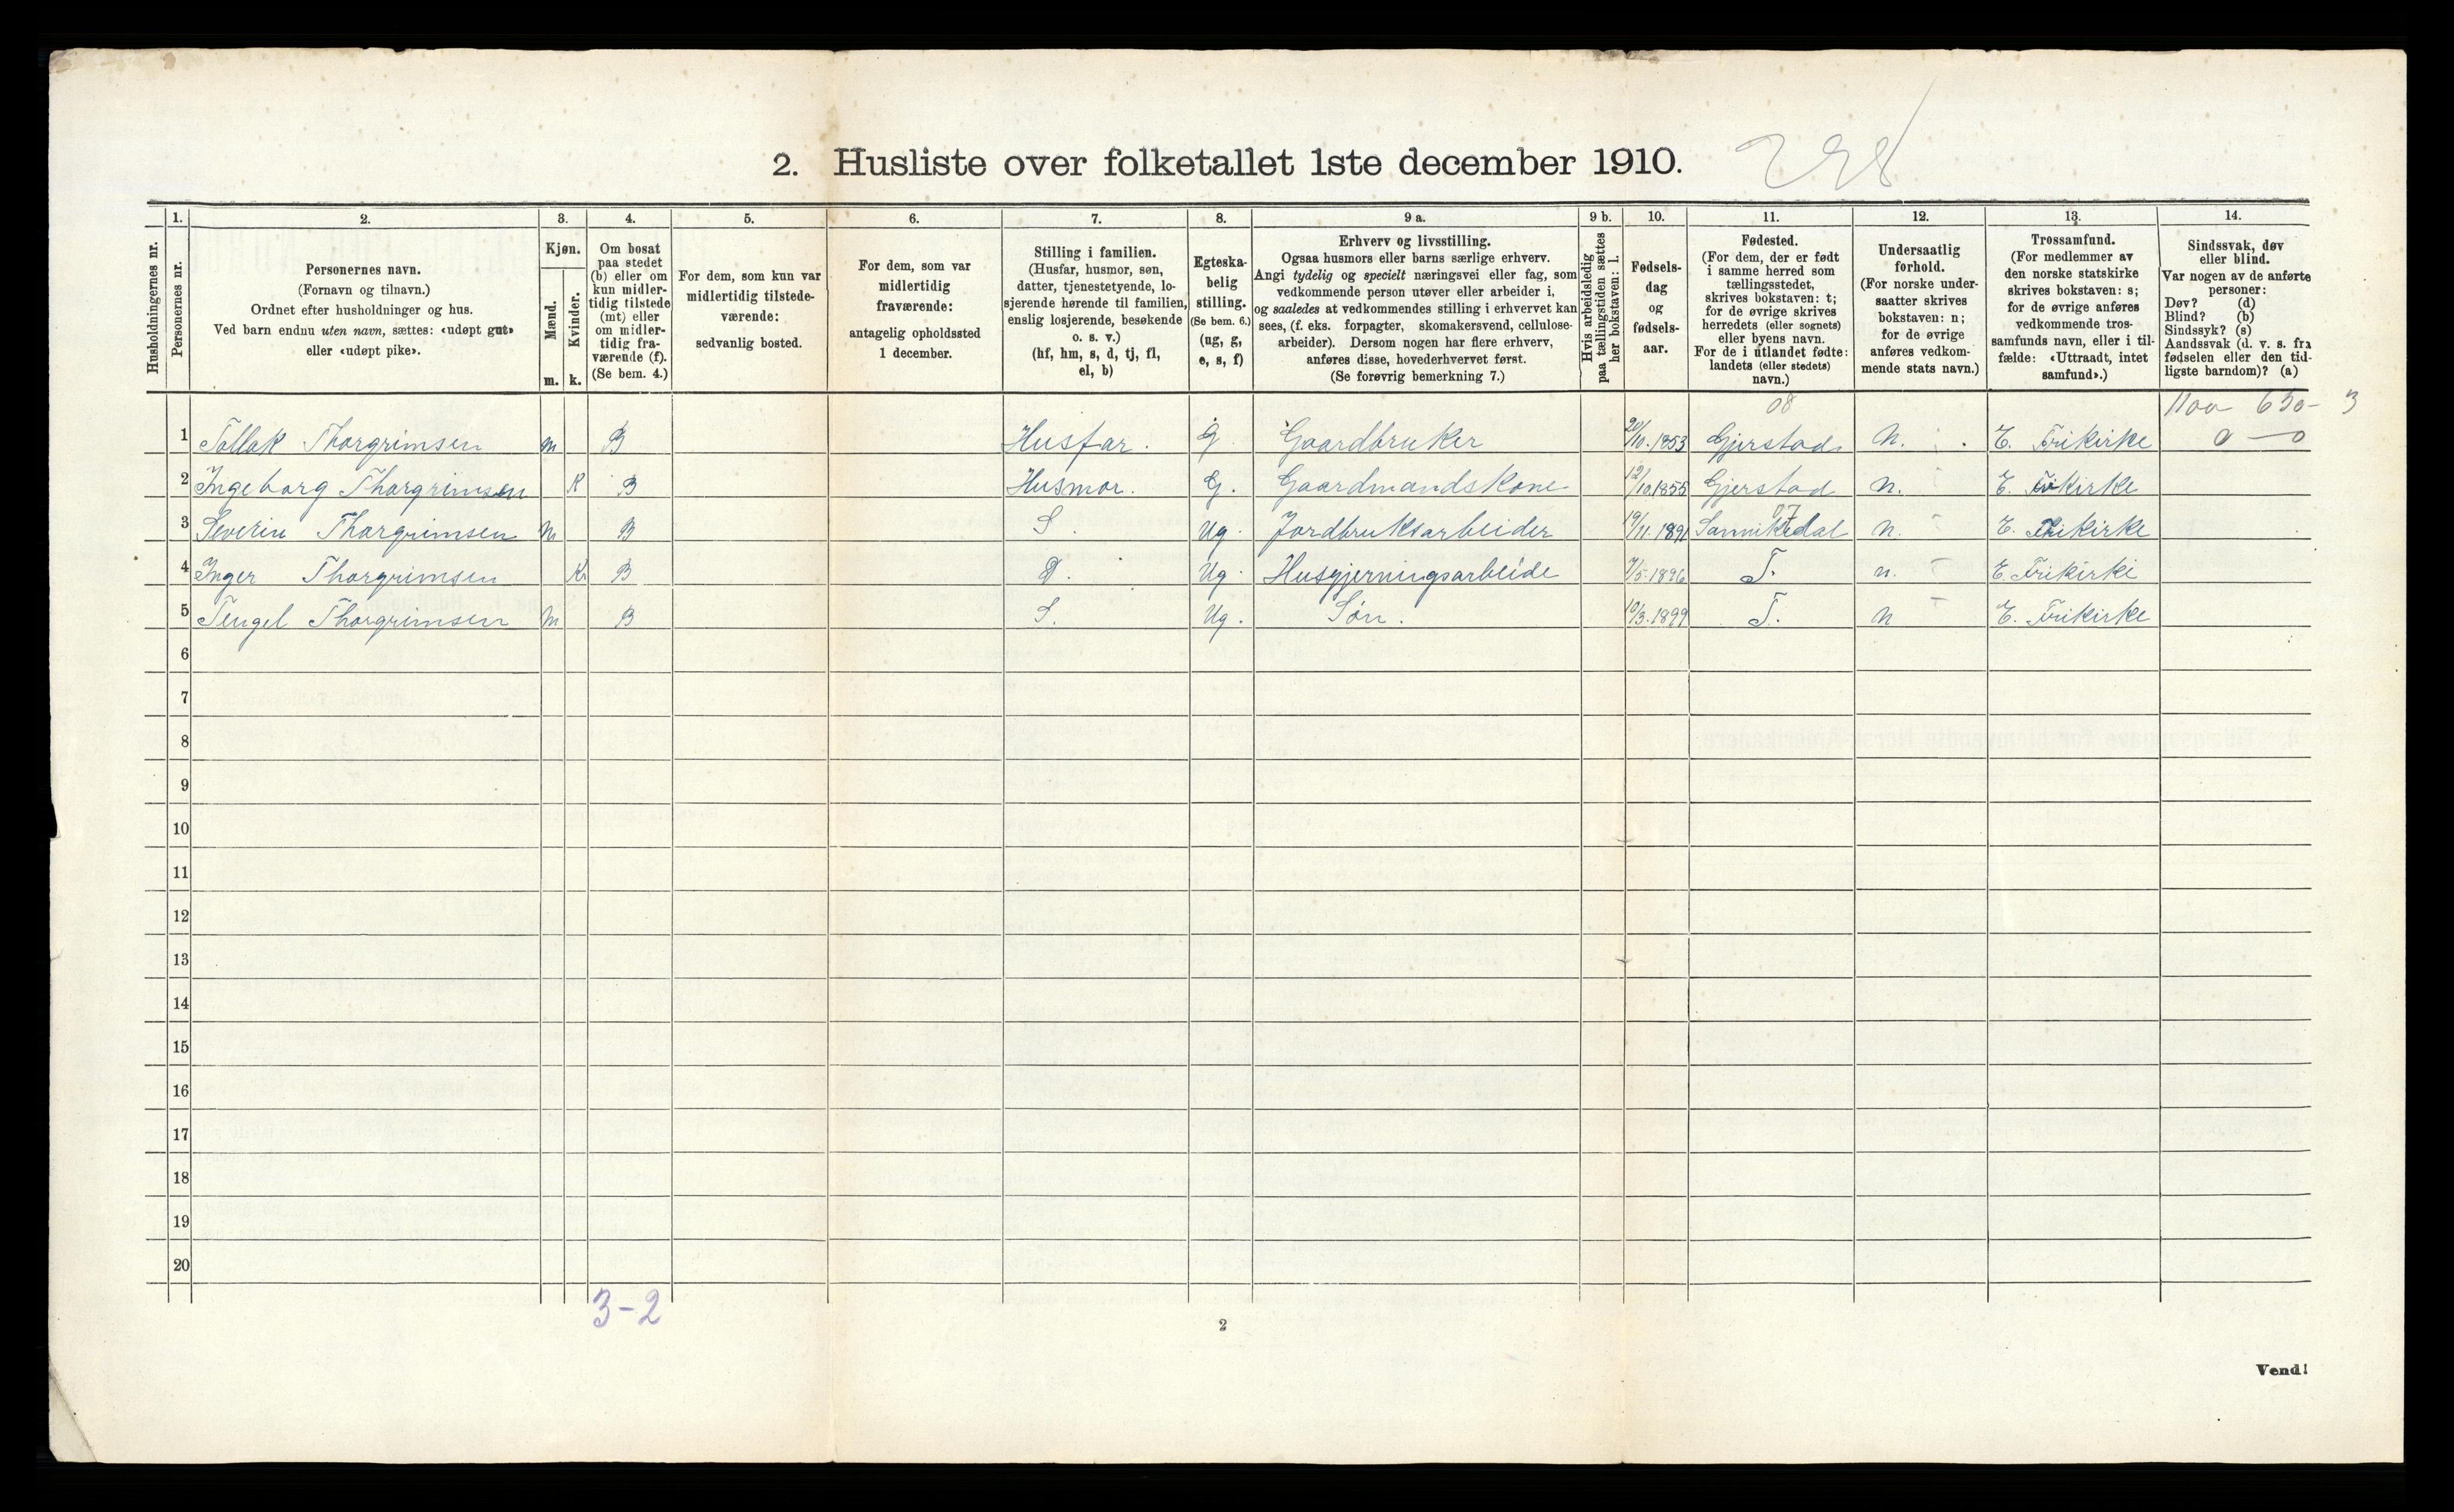 2. Husliste over folketallet 1ste december 1910.
Husholdningernes nr.
1.
Personernes nr.
2.
Personernes navn.
(Fornavn og tilnavn.)
Ordnet efter husholdninger og hus.
Ved barn endnu uten navn, sættes: «udøpt gut»
eller «udøpt pike».
3.
Kjøn.
Mænd.
m.
Kvinder.
k.
4.
Om bosat
paa stedet
(b) eller om
kun midler-
tidig tilstede
(mt) eller
om midler-
tidig fra-
værende (f).
(Se bem. 4.)
5.
For dem, som kun var
midlertidig tilstede-
værende:
sedvanlig bosted.
6.
For dem, som var
midlertidig
fraværende:
antagelig opholdssted
1 december.
7.
Stilling i familien.
(Husfar, husmor, søn,
datter, tjenestetyende, lo-
sjerende hørende til familien,
enslig losjerende, besøkende
o. s. v.)
(hf, hm, s, d, tj, fl,
el, b)
8.
Egteska-
belig
stilling.
(Se bem. 6.)
(ug, g,
e, s, f)
9 a.
Erhverv og livsstilling.
Ogsaa husmors eller barns særlige erhverv.
Angi tydelig og specielt næringsvei eller fag, som
vedkommende person utøver eller arbeider i,
og saaledes at vedkommendes stilling i erhvervet kan
sees, (f. eks. forpagter, skomakersvend, cellulose-
arbeider). Dersom nogen har flere erhverv,
anføres disse, hovederhvervet først.
(Se forøvrig bemerkning 7.)
9 b.
Hvis arbeidsledig
paa tællingstiden sættes
her bokstaven: l.
10.
Fødsels-
dag
og
fødsels-
aar.
11.
Fødested.
(For dem, der er født
i samme herred som
tællingsstedet,
skrives bokstaven: t;
for de øvrige skrives
herredets (eller sognets)
eller byens navn.
For de i utlandet fødte:
landets (eller stedets)
navn.)
12.
Undersaatlig
forhold.
(For norske under-
saatter skrives
bokstaven: n;
for de øvrige
anføres vedkom-
mende stats navn.)
13.
Trossamfund.
(For medlemmer av
den norske statskirke
skrives bokstaven: s;
for de øvrige anføres
vedkommende tros-
samfunds navn, eller i til-
fælde: «Uttraadt, intet
samfund».)
14.
Sindssvak, døv
eller blind.
Var nogen av de anførte
personer:
Døv? (d)
Blind? (b)
Sindssyk? (s)
Aandssvak (d. v. s. fra
fødselen eller den tid-
ligste barndom)? (a)
08 1100 650 - 3
1 Tallak Thorgrimsen m B Husfar. G. Gaardbruker 20/10.1853 Gjerstad n. E. Frikirke 0 — 0
2 Ingeborg Thorgrimsen K B Husmor. G. Gaardmandskone 12/10.1855 Gjerstad n. E. Frikirke
07
3 Severin Thorgrimsen m B S. Ug. Jordbruksarbeider 19/11.1891 Sannikedal n. E. Frikirke
4 Inger Thorgrimsen K B D. Ug. Husgjerningsarbeide 7/5.1896 T. n. E. Frikirke
5 Tengel Thorgrimsen m B S. Ug. Søn. 10/3.1899 T. n E. Frikirke
6
7
8
9
10
11
12
13
14
15
16
17
18
19
20
3-2
2
Vend!